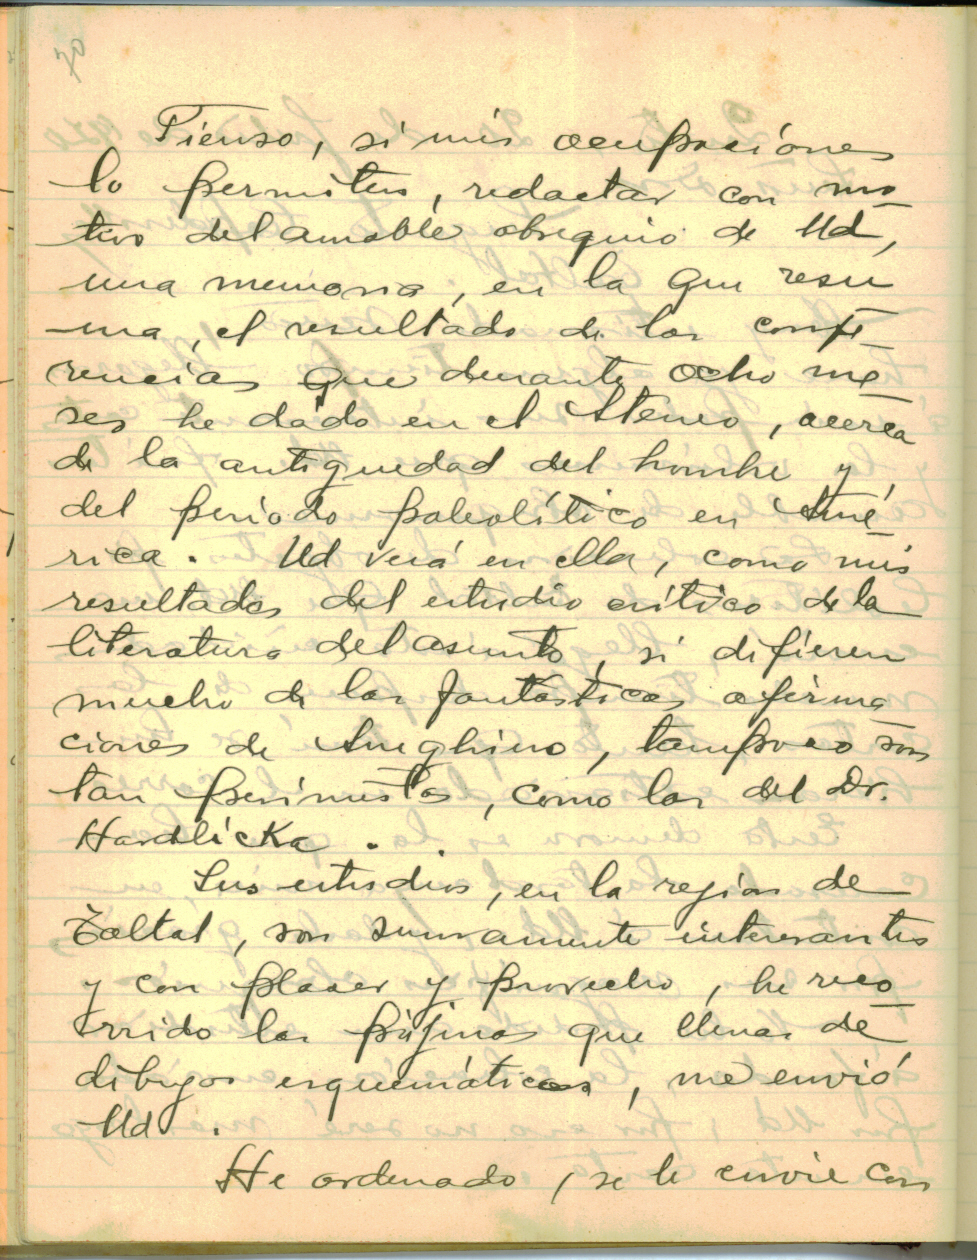 Pienso, si mis ocupaciones
lo permiten, redactar con mo
tivo del amable obsequio de Ud,
una memoria, en la que resu
ma, el resultado de las confe
rencias que durante ocho me
ses he dado en el Ateneo, acerca
de la antiguedad del hombre y
del periodo paleolítico en Amé
rica. Ud verá en ella, como mis
resultados del estudio crítico de la
literatura del asunto, si difieren
mucho de las fantásticas afirma
ciones de Ameghino, tampoco son
tan pesimistas, como las del Dr.
Hardlicka.
Sus estudios, en la region de
Taltal, son sumamente interesantes
y con placer y provecho, he reco
rrido las pájinas que llenas de
dibujos esquemáticos, me envió
Ud.
He ordenado, se le envie con